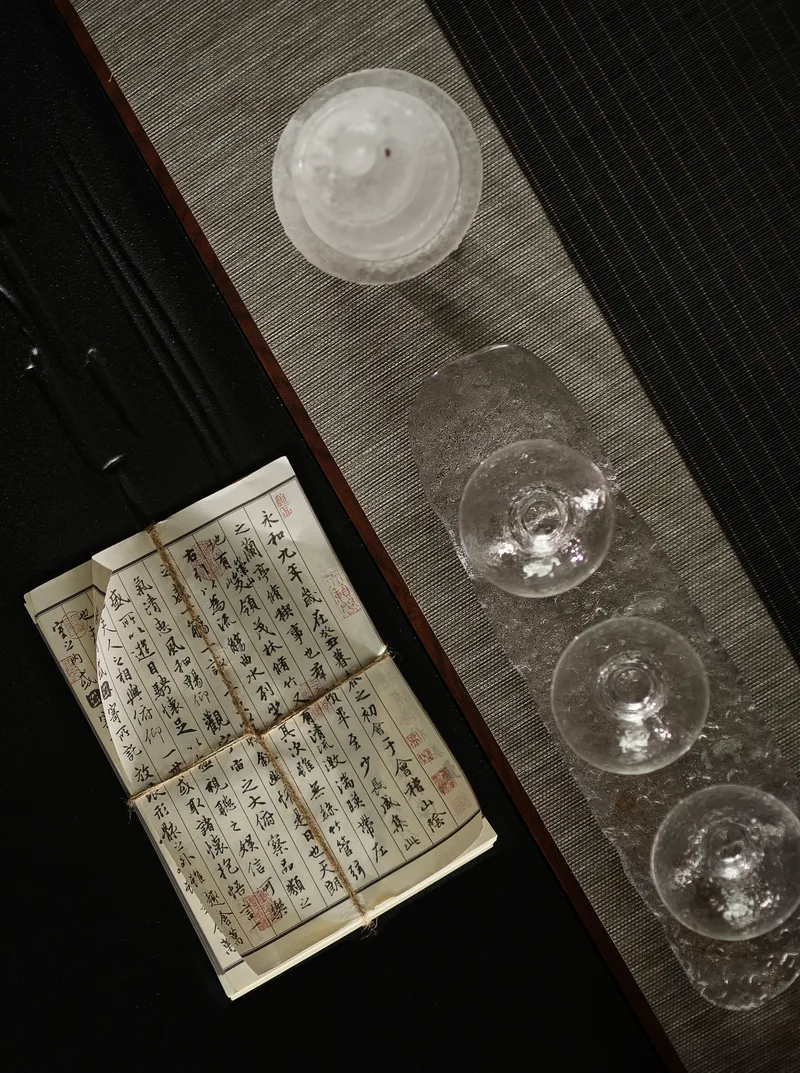 永和九年歲在癸丑暮之初會于會稽山陰
之蘭亭脩稧事也羣畢至少長咸集此
地有峻領茂林脩竹有清流激湍暎帶左
右引以為流觴曲水列坐其次雖無絲竹管弦
之盛一觴一詠幽情是日也天朗
氣清惠風和暢仰觀宙之大俯察品類之
盛所以遊目騁懷足以視聽之娛信可樂
也夫人之相與俯仰一世或取諸懷抱悟言
室之內或寄所託放浪形骸之外雖趣舍萬